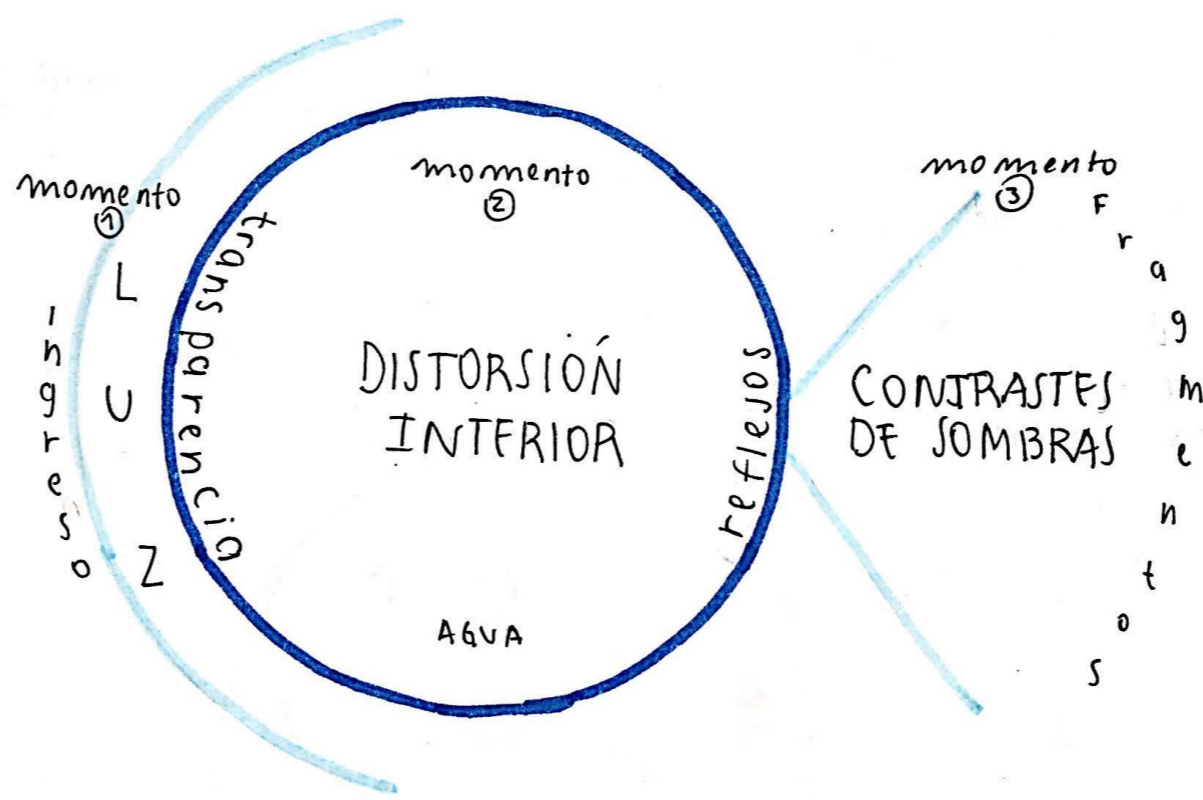 momento
①
Ingreso
LUZ
transparencia
momento
②
DISTORSIÓN
INTERIOR
reflejos
AGUA
momento
③
CONTRASTES
DE SOMBRAS
Fragmentos